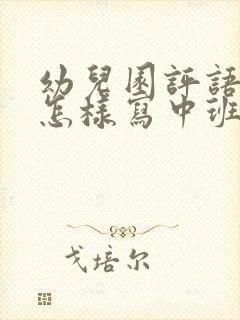 幼兒園評語
怎樣寫中班
戈培尔